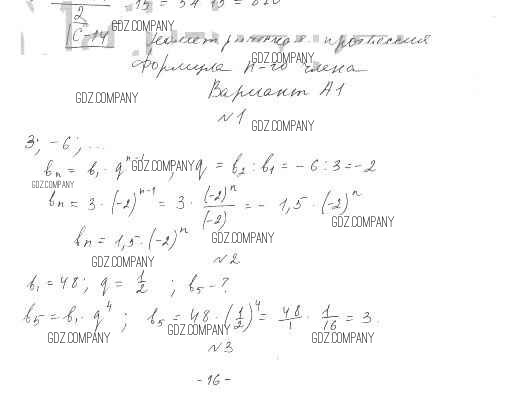 2 15 = 54 15 = 820
GDZ.COMPANY
С-14 Геометрическая прогрессия
GDZ.COMPANY
Формула n-го члена
GDZ.COMPANY
Вариант А1
№1
GDZ.COMPANY
3; -6; ...
bₙ = b₁ · qⁿ⁻¹; q = b₂ : b₁ = -6 : 3 = -2
GDZ.COMPANY
GDZ.COMPANY
bₙ = 3 · (-2)ⁿ⁻¹ = 3 · (-2)ⁿ/(-2) = - 1,5 · (-2)ⁿ
GDZ.COMPANY
bₙ = 1,5 · (-2)ⁿ
GDZ.COMPANY
GDZ.COMPANY
№2
b₁ = 48; q = 1/2; b₅ - ?
b₅ = b₁ · q⁴; b₅ = 48 · (1/2)⁴ = 48/1 · 1/16 = 3.
GDZ.COMPANY GDZ.COMPANY GDZ.COMPANY
№3
- 16 -